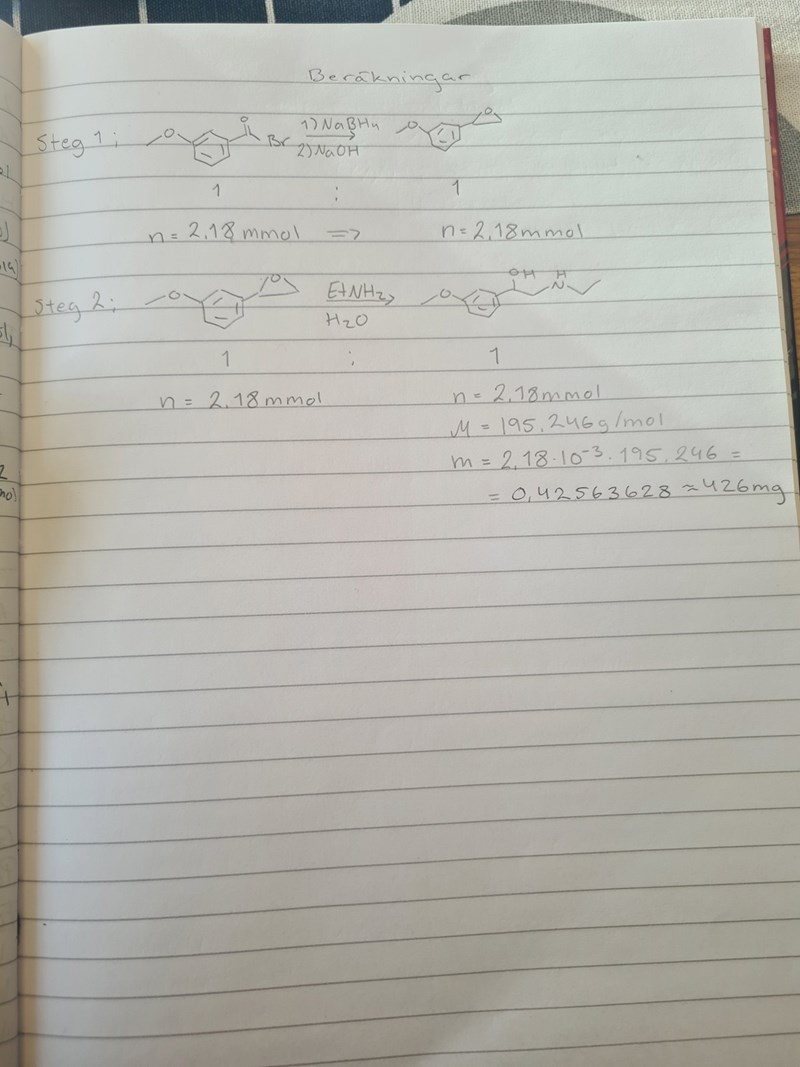 Beräkningar
Steg 1: O O Br 1) NaBH4 2) NaOH O O
1 : 1
n = 2,18 mmol => n = 2,18 mmol
Steg 2: O O EtNH2 H2O O OH H N
1 : 1
n = 2,18 mmol n = 2,18 mmol
M = 195,246 g/mol
m = 2,18·10⁻³·195,246 =
= 0,42563628 ≈ 426 mg